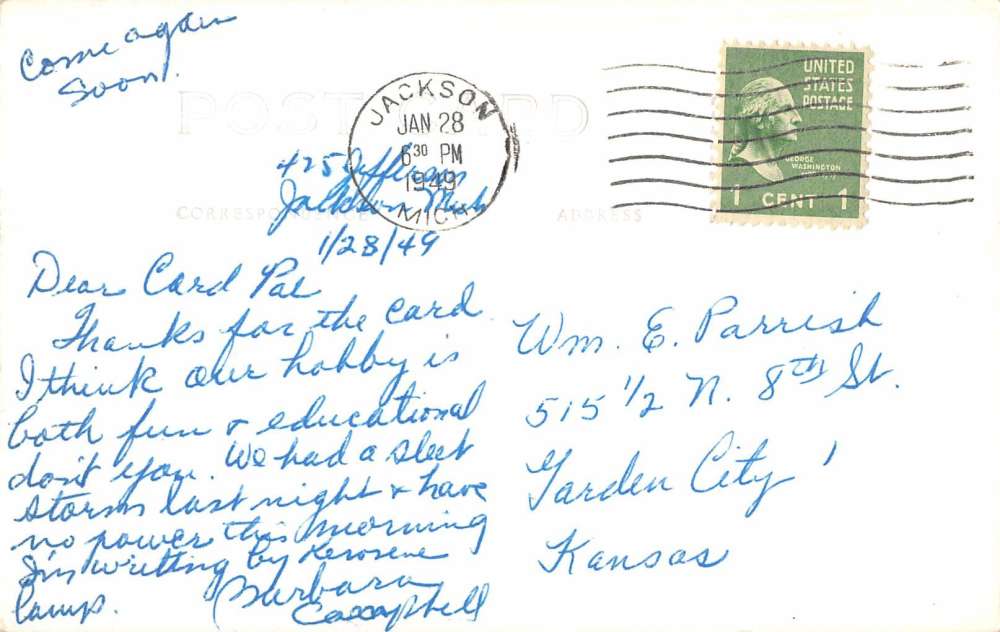 Come again
Soon.
POST CARD
JACKSON
JAN 28
6 30 PM
1949
MICH.
UNITED
STATES
POSTAGE
GEORGE
WASHINGTON
1 CENT 1
425 Jefferson
Jackson Mich
CORRESPONDENCE
ADDRESS
1/28/49
Dear Card Pal
Thanks for the card.
I think our hobby is
both fun & educational
don't you. We had a sleet
storm last night & have
no power this morning
I'm writting by kerosene
lamp.
Barbara
Campbell
Wm. E. Parrish
515 1/2 N. 8th St.
Garden City,
Kansas